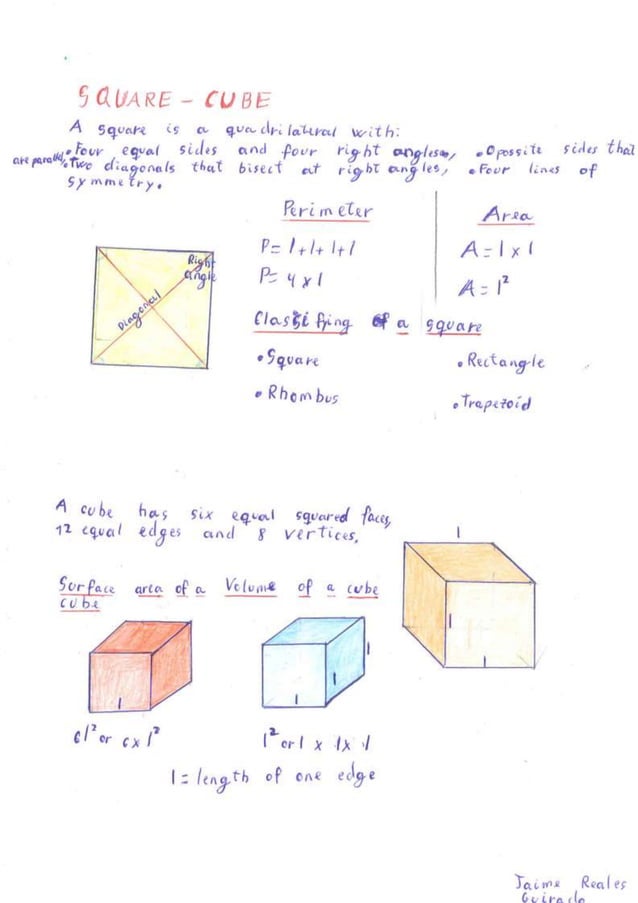 SQUARE - CUBE
A square is a quadrilateral with:
• Four equal sides and four right angles, • Opossite sides that
are parallel, • Two diagonals that bisect at right angles, • Four lines of
symmetry.
Perimeter
Area
P= l+l+l+l
A = l x l
P= 4 x l
A = l²
Right
angle
Diagonal
Classifying of a square
• Square
• Rectangle
• Rhombus
• Trapezoid
A cube has six equal squared faces,
12 equal edges and 8 vertices,
l
Surface area of a
cube
Volume of a cube
l
l
l
l
l
l
6l² or 6 x l²
l² or l x l x l
l = length of one edge
Jaime Reales
Guirado